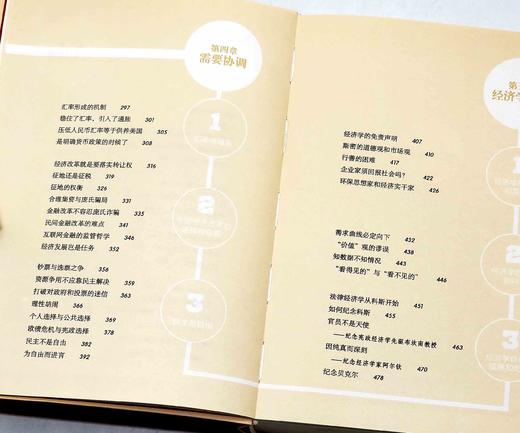 第四章
需要协调
1
汇率形成的机制 297
稳住了汇率，引入了通胀 301
压低人民币汇率等于供养美国 305
是明确货币政策的时候了 308
2
经济改革就是要落实转让权 316
征地还是征税 319
征地的权衡 326
合理集资与庞氏骗局 331
金融改革不容忍庞氏诈骗 335
民间金融改革的难点 341
互联网金融的监管哲学 346
经济发展岂是任务 352
3
钞票与选票之争 356
资源争用不应靠民主解决 359
打破对政府和投票的迷信 364
理性胡闹 366
个人选择与公共选择 369
欧债危机与宪政选择 378
民主不是自由 382
为自由而进言 392
第
经济学
经济学的免责声明 407
斯密的道德观和市场观 410
行善的困难 417
企业家须回报社会吗？ 422
环保思想家和经济实干家 426
需求曲线必定向下 432
“价值”观的谬误 438
知数据不知情况 443
“看得见的”与“看不见的” 446
法律经济学从科斯开始 451
如何纪念科斯 455
官员不是天使
——纪念宪政经济学先驱布坎南教授 463
因纯真而深刻
——纪念经济学家阿尔钦 470
纪念贝克尔 478